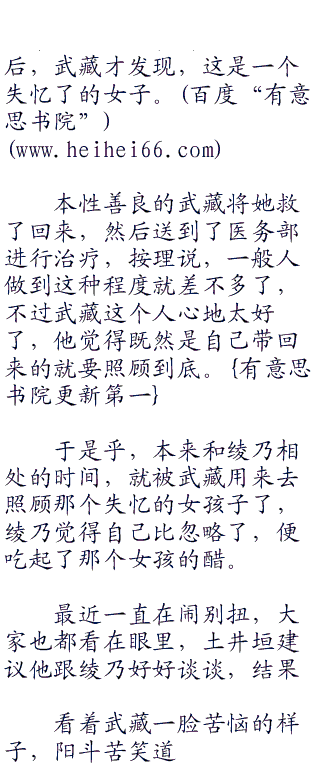 后，武藏才发现，这是一个
失忆了的女子。(百度“有意
思书院”)
(www.heihei66.com)
本性善良的武藏将她救
了回来，然后送到了医务部
进行治疗，按理说，一般人
做到这种程度就差不多了，
不过武藏这个人心地太好
了，他觉得既然是自己带回
来的就要照顾到底。{有意思
书院更新第一}
于是乎，本来和绫乃相
处的时间，就被武藏用来去
照顾那个失忆的女孩子了，
绫乃觉得自己比忽略了，便
吃起了那个女孩的醋。
最近一直在闹别扭，大
家也都看在眼里，土井垣建
议他跟绫乃好好谈谈，结果
看着武藏一脸苦恼的样
子，阳斗苦笑道